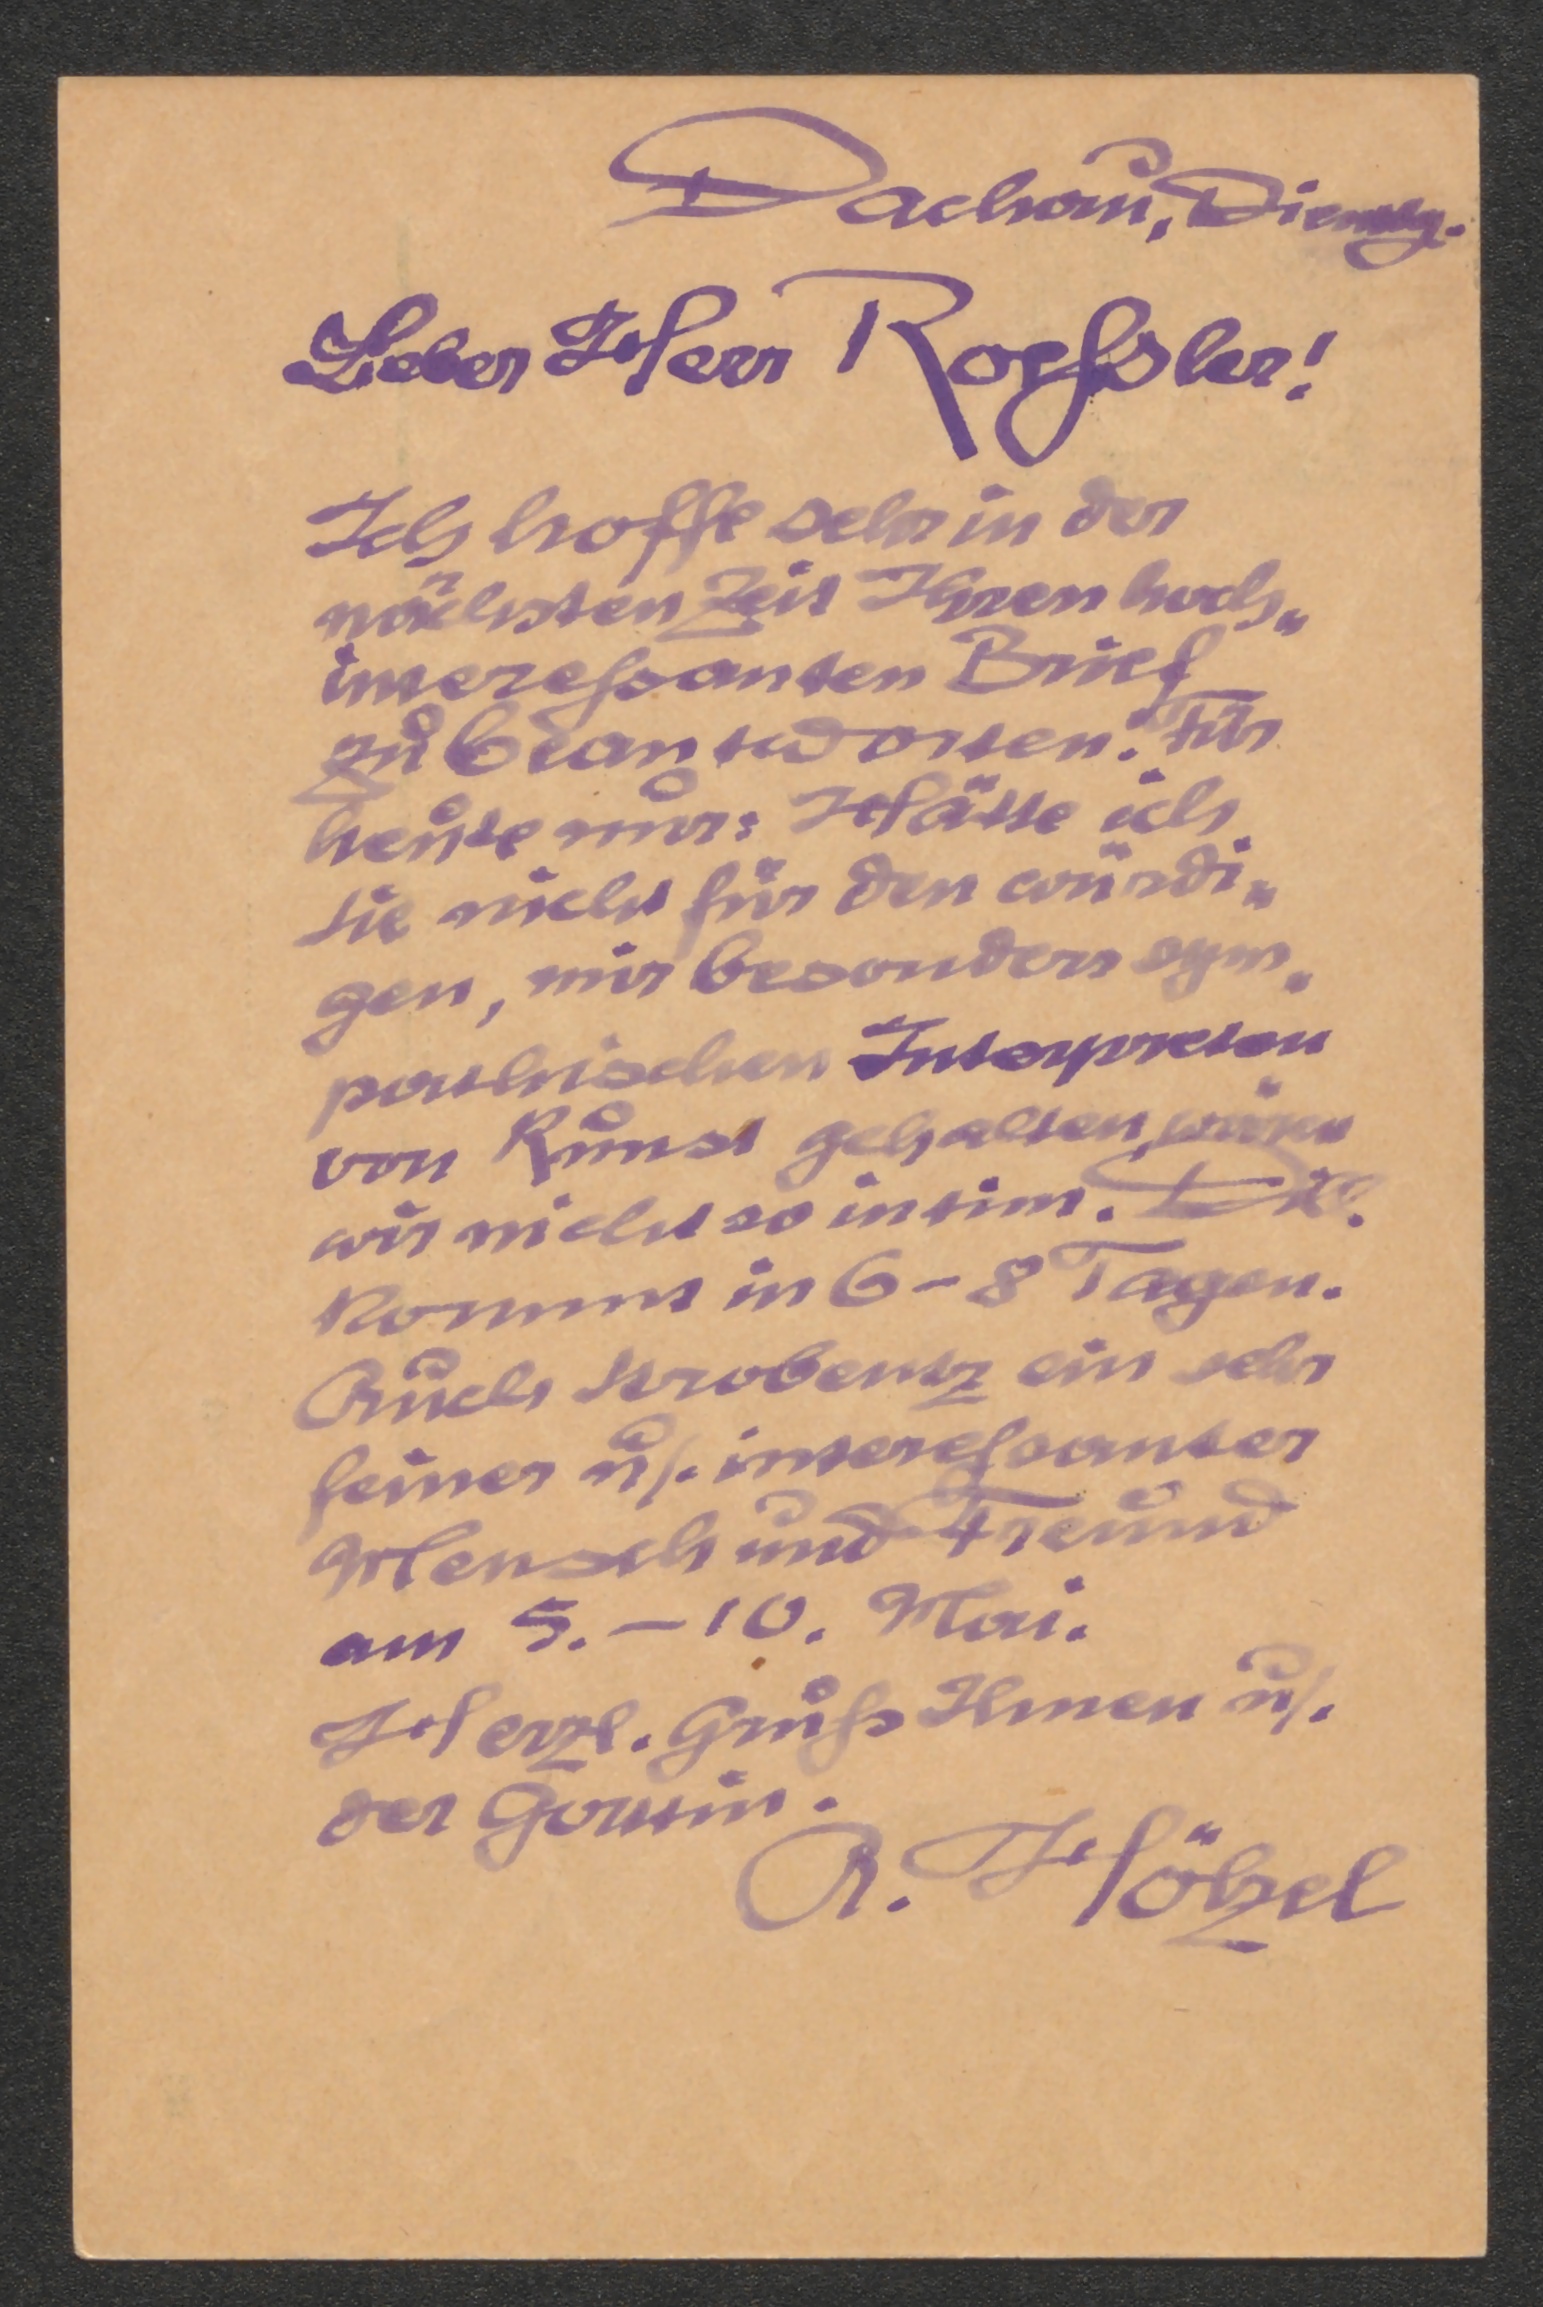 Dachau, Dienstg.
Lieber Herr Roeßler!
Ich hoffe sehr in der
nächsten Zeit Ihren hoch-
intereßanten Brief
zu beantworten. Für
heute nur: Hätte ich
Sie nicht für den würdi-
gen, mir besonders sym-
pathischen Interpreten
von Kunst gehalten, wären
wir nicht so intim.
Kommt in 6-8 Tagen.
Auch Strobentz ein sehr
feiner u. intereßanter
Mensch und Freund
am 5.-10. Mai.
Herzl. Gruß Ihnen u.
der Gattin.
A. Hölzel